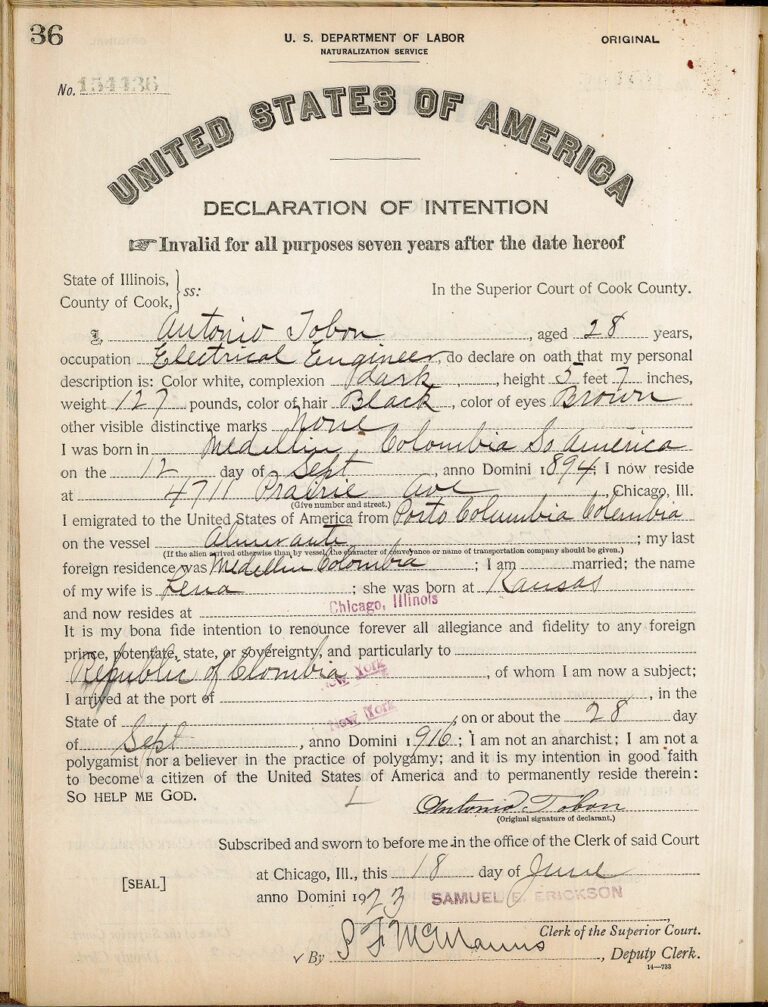 36
U. S. DEPARTMENT OF LABOR
NATURALIZATION SERVICE
ORIGINAL
No. 154436
UNITED STATES OF AMERICA
DECLARATION OF INTENTION
☞Invalid for all purposes seven years after the date hereof
State of Illinois,
County of Cook, } ss:
In the Superior Court of Cook County.
I, Antonio Tobon, aged 28 years,
occupation Electrical Engineer, do declare on oath that my personal
description is: Color white, complexion dark, height 5 feet 7 inches,
weight 127 pounds, color of hair Black, color of eyes Brown
other visible distinctive marks None
I was born in Medellin, Colombia So America
on the 12 day of Sept, anno Domini 1894; I now reside
at 4711 Prairie Ave, Chicago, Ill.
(Give number and street.)
I emigrated to the United States of America from Porto Columbia Colembia
on the vessel Almirante; my last
(If the alien arrived otherwise than by vessel, the character of conveyance or name of transportation company should be given.)
foreign residence was Medellin Colombia; I am married; the name
of my wife is Lena; she was born at Kansas
and now resides at Chicago, Illinois
It is my bona fide intention to renounce forever all allegiance and fidelity to any foreign
prince, potentate, state, or sovereignty, and particularly to
Republic of Clombia, of whom I am now a subject;
I arrived at the port of New York, in the
State of New York, on or about the 28 day
of Sept, anno Domini 1916; I am not an anarchist; I am not a
polygamist nor a believer in the practice of polygamy; and it is my intention in good faith
to become a citizen of the United States of America and to permanently reside therein:
SO HELP ME GOD.
Antonio Tobon
(Original signature of declarant.)
Subscribed and sworn to before me in the office of the Clerk of said Court
at Chicago, Ill., this 18 day of June
[SEAL]
anno Domini 1923 SAMUEL E. ERICKSON
Clerk of the Superior Court.
✓ By P F McManus, Deputy Clerk.
14—733